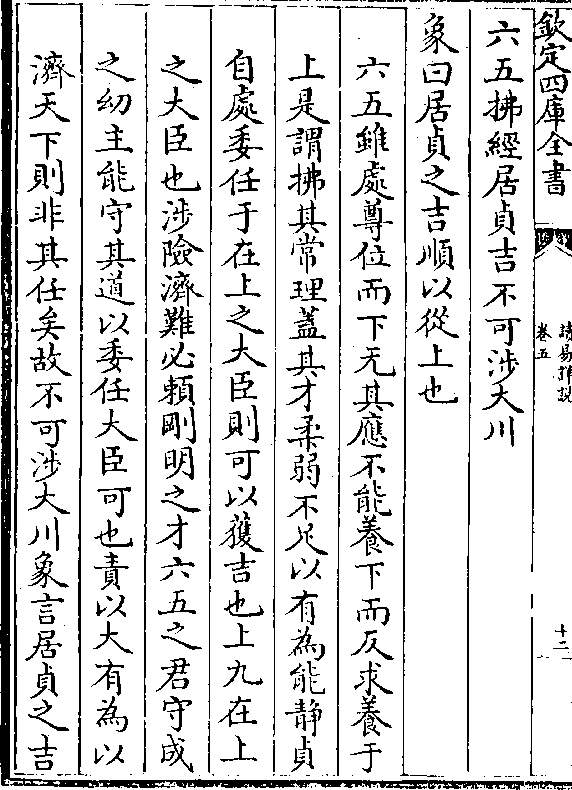 欽定四庫全書
讀易詳說
卷五
十二
六五拂經居貞吉不可涉大川
象曰居貞之吉順以從上也
六五雖處尊位而下无其應不能養下而反求養于
上是謂拂其常理蓋其才柔弱不足以有為能静貞
自處委任于在上之大臣則可以獲吉也上九在上
之大臣也涉險濟難必頼剛明之才六五之君守成
之㓜主能守其道以委任大臣可也責以大有為以
濟天下則非其任矣故不可涉大川象言居貞之吉